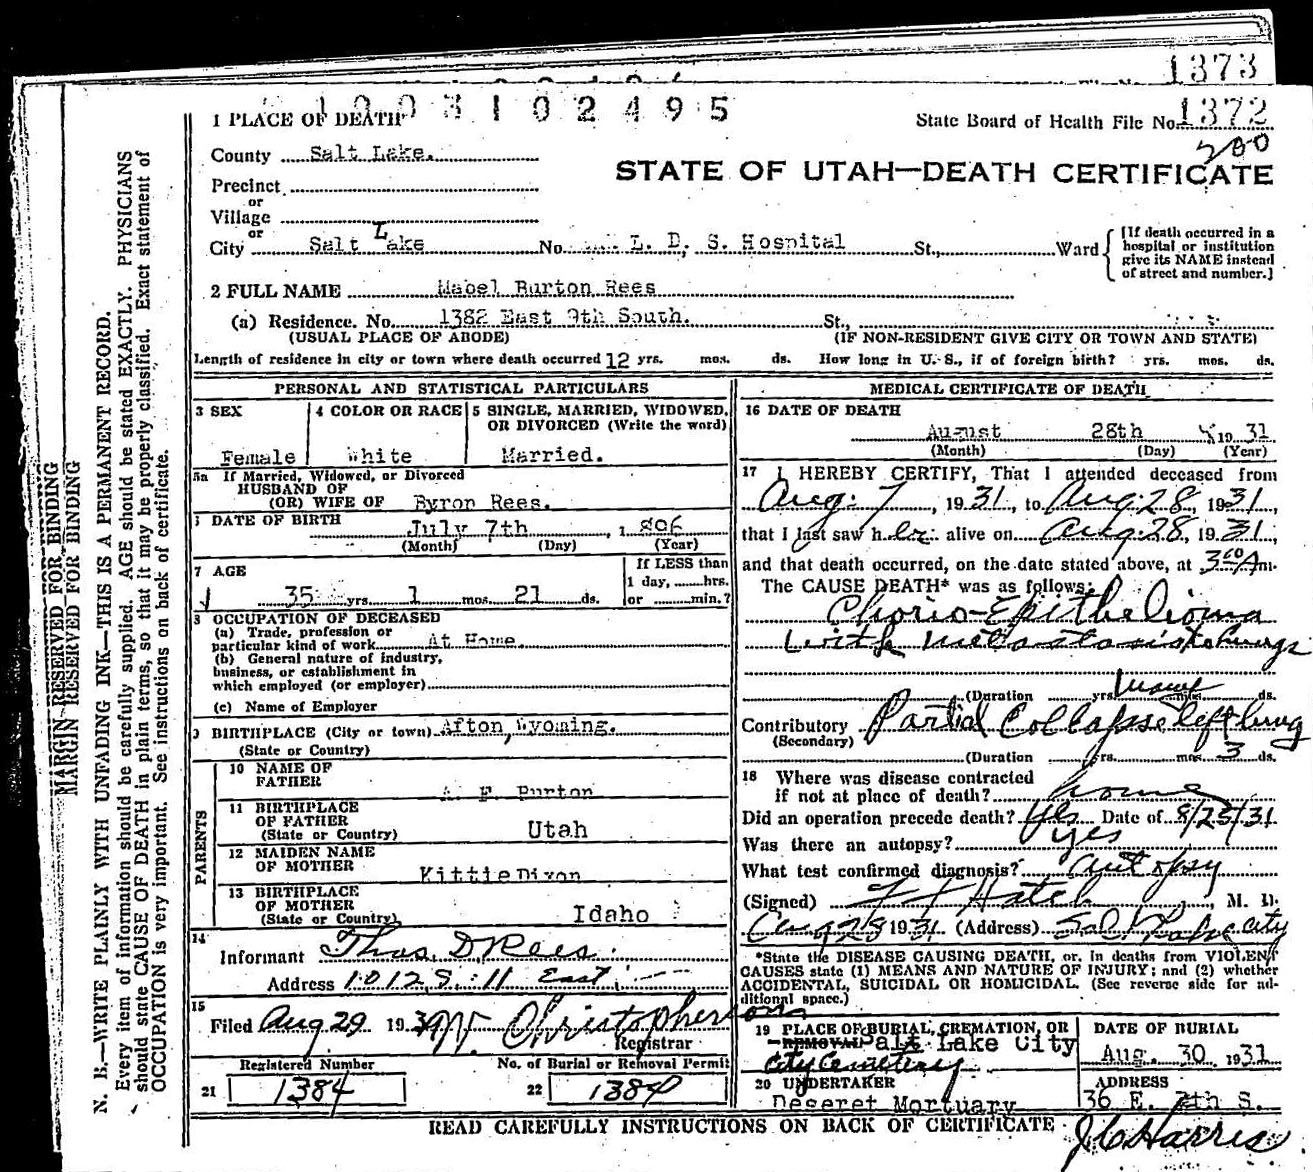 1373
1003102495
1 PLACE OF DEATH
State Board of Health File No. 1372
200
County Salt Lake.
STATE OF UTAH—DEATH CERTIFICATE
Precinct
or
Village
or
City Salt Lake No. L. D. S. Hospital St., Ward
[If death occurred in a hospital or institution give its NAME instead of street and number.]
2 FULL NAME Mabel Burton Rees
(a) Residence. No. 1382 East 9th South. St.,
(USUAL PLACE OF ABODE) (IF NON-RESIDENT GIVE CITY OR TOWN AND STATE)
Length of residence in city or town where death occurred 12 yrs. mos. ds. How long in U. S., if of foreign birth? yrs. mos. ds.
PERSONAL AND STATISTICAL PARTICULARS
3 SEX 4 COLOR OR RACE 5 SINGLE, MARRIED, WIDOWED, OR DIVORCED (Write the word)
Female White Married.
5a If Married, Widowed, or Divorced
HUSBAND OF
(OR) WIFE OF Byron Rees.
DATE OF BIRTH July 7th, 1896
(Month) (Day) (Year)
7 AGE If LESS than
1 day, hrs.
35 yrs. 1 mos. 21 ds. or min.?
8 OCCUPATION OF DECEASED
(a) Trade, profession or
particular kind of work At Home.
(b) General nature of industry,
business, or establishment in
which employed (or employer)
(c) Name of Employer
9 BIRTHPLACE (City or town) Afton, Wyoming.
(State or Country)
PARENTS
10 NAME OF
FATHER A. F. Burton
11 BIRTHPLACE
OF FATHER
(State or Country) Utah
12 MAIDEN NAME
OF MOTHER Kittie Dixon
13 BIRTHPLACE
OF MOTHER
(State or Country) Idaho
14
Informant Thos. D Rees.
Address 1012 S. 11 East
15
Filed Aug 29 1931 W. Christopherson
Registrar
Registered Number No. of Burial or Removal Permit
21 1384 22 1384
MEDICAL CERTIFICATE OF DEATH
16 DATE OF DEATH
August 28th 1931
(Month) (Day) (Year)
17 I HEREBY CERTIFY, That I attended deceased from
Aug. 7, 1931, to Aug. 28, 1931,
that I last saw her alive on Aug. 28, 1931,
and that death occurred, on the date stated above, at 3 00 A m.
The CAUSE DEATH* was as follows:
Chorio-Epithelioma
with metastasis to lungs
(Duration yrs. mos. ds.
Contributory Partial Collapse left lung
(Secondary)
(Duration yrs. mos. 3 ds.
18 Where was disease contracted
if not at place of death? home
Did an operation precede death? yes Date of 8/23/31
Was there an autopsy? yes
What test confirmed diagnosis? autopsy
(Signed) Hatch, M. D.
Aug 28 1931 (Address) Salt Lake City
*State the DISEASE CAUSING DEATH, or, In deaths from VIOLENT
CAUSES state (1) MEANS AND NATURE OF INJURY; and (2) whether
ACCIDENTAL, SUICIDAL OR HOMICIDAL. (See reverse side for ad-
ditional space.)
19 PLACE OF BURIAL, CREMATION, OR DATE OF BURIAL
REMOVAL Salt Lake City
City Cemetery Aug. 30 1931
20 UNDERTAKER ADDRESS
Deseret Mortuary 36 E. 7th S.
READ CAREFULLY INSTRUCTIONS ON BACK OF CERTIFICATE
J C Harris
MARGIN RESERVED FOR BINDING
MARGIN RESERVED FOR BINDING
N. B.—WRITE PLAINLY WITH UNFADING INK—THIS IS A PERMANENT RECORD.
Every item of information should be carefully supplied. AGE should be stated EXACTLY. PHYSICIANS
should state CAUSE OF DEATH in plain terms, so that it may be properly classified. Exact statement of
OCCUPATION is very important. See instructions on back of certificate.